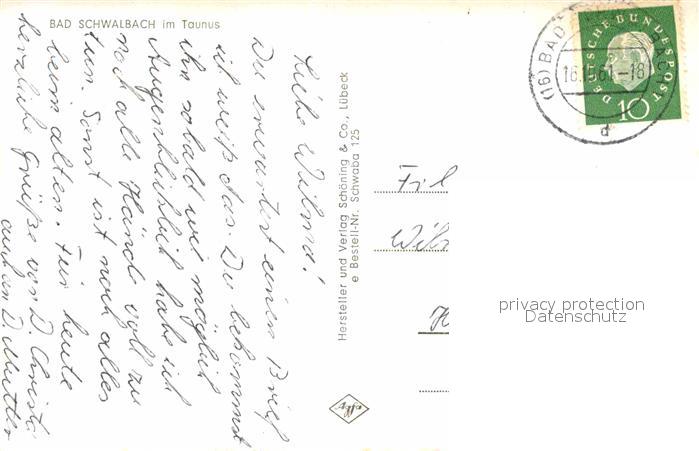 BAD SCHWALBACH im Taunus
Liebe Wilma!
Du erwartest einen Brief
ich weiß das. Du bekommst
ihn sobald wie möglich
Augenblicklich habe ich
noch alle Hände voll zu
tun. Sonst ist noch alles
beim alten. Für heute
herzliche Grüße von D. Christa
auch an D. Mutter
Hersteller und Verlag Schöning & Co., Lübeck
e Bestell-Nr. Schwaba 125
Agfa
DEUTSCHE BUNDESPOST
10
(16) BAD
BACH
61.-18
d
Wil
privacy protection
Datenschutz